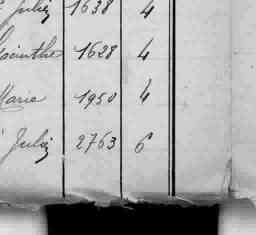 Julie 1638 4
Hacinthe 1628 4
Marie 1950 4
Julie 2763 6